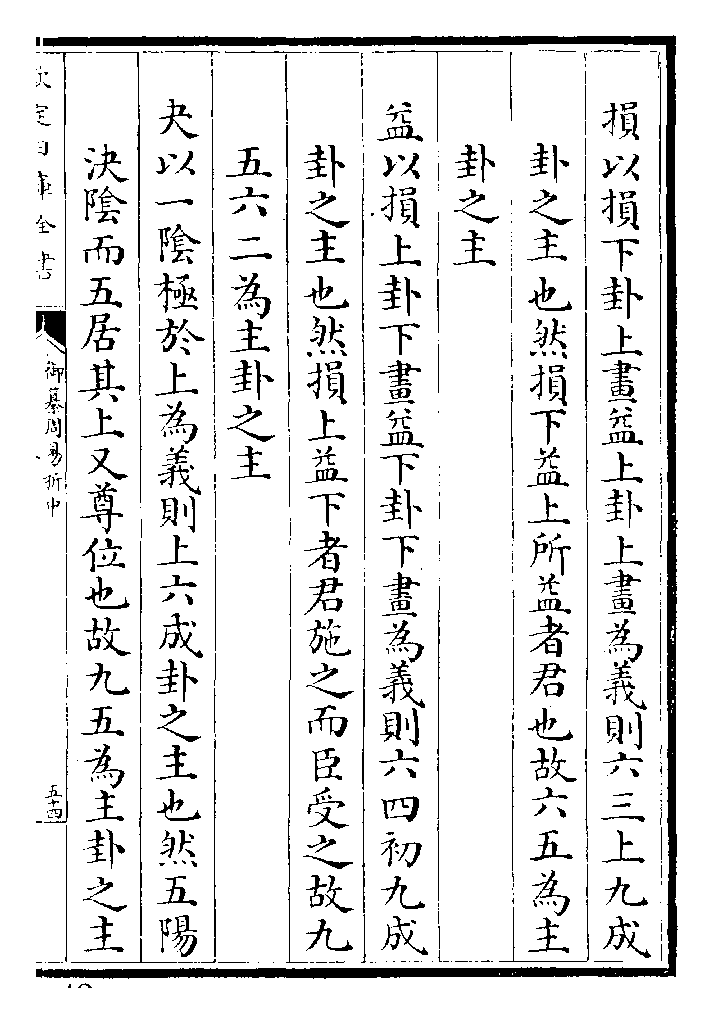 損以損下卦上畫益上卦上畫為義則六三上九成
卦之主也然損下益上所益者君也故六五為主
卦之主
益以損上卦下畫益下卦下畫為義則六四初九成
卦之主也然損上益下者君施之而臣受之故九
五六二為主卦之主
夬以一陰極於上為義則上六成卦之主也然五陽
決陰而五居其上又尊位也故九五為主卦之主
欽定四庫全書
御纂周易折中
五十四